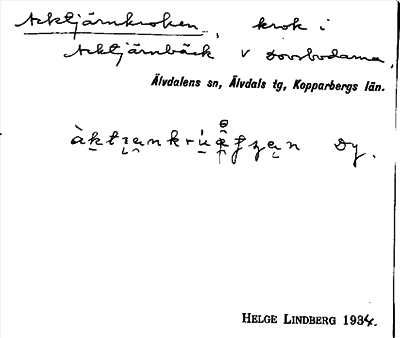 Acktjärnkroken, krok i
Acktjärnbäck v Dovrbodarna,
Älvdalens sn, Älvdals tg, Kopparbergs län.
Dy.
HELGE LINDBERG 1934.